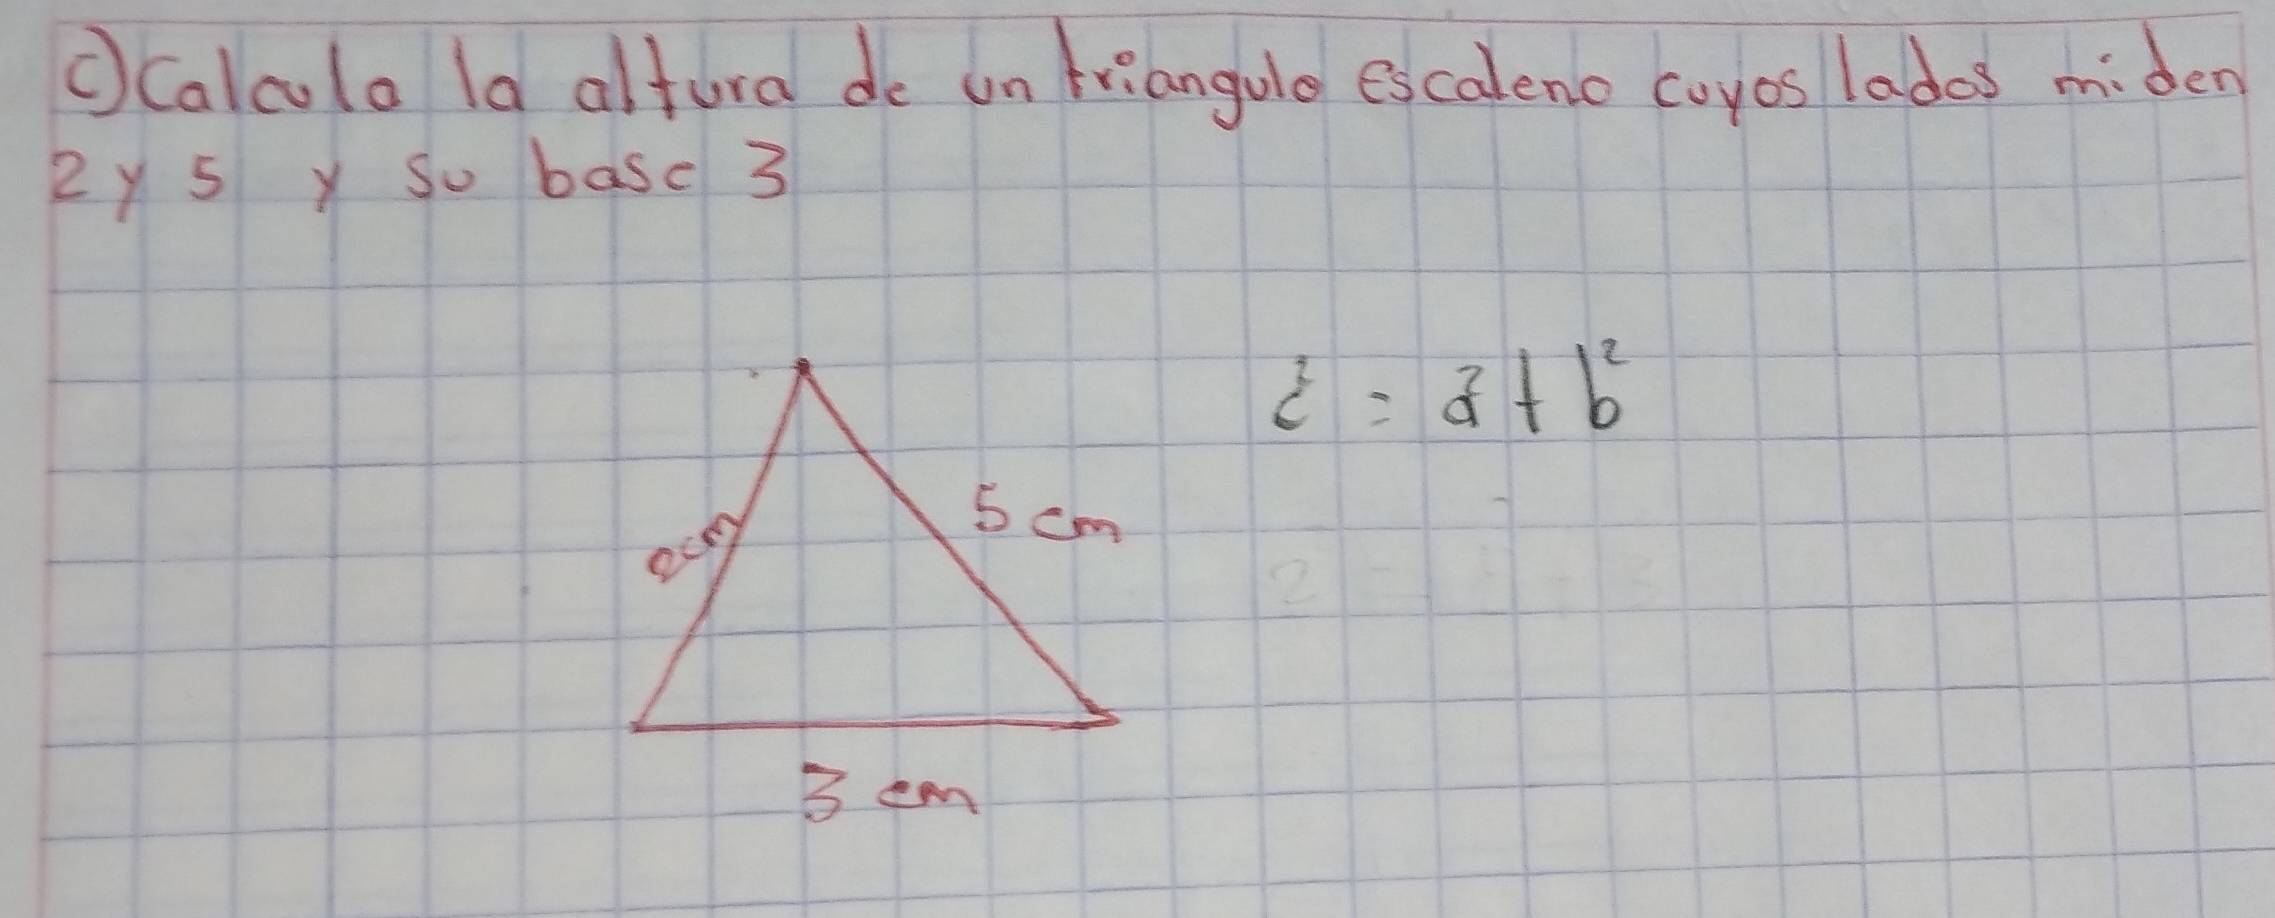 c) Calcula la altura de un triangulo escaleno cuyos lados miden
2 y 5 y su base 3
c² = a² + b²
5 cm
2cm
3 cm